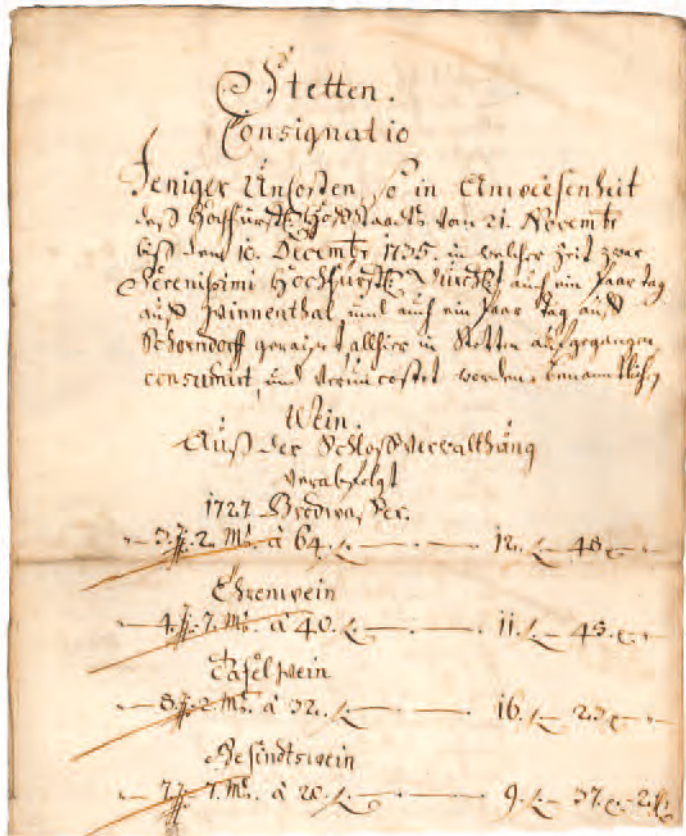 Stetten.
Consignatio
Jeniger Uncosten, so in Anweesenheit
deß Hochfürstl: Hoffstaadts vom 21. Novembr:
biß den 10. Decembr: 1735. in welcher Zeit zwar
Serenissimi Hochfürstl: Durchlt: auch ein paar tag
auß Winnenthal, und auch ein paar tag auß
Schorndorff geraist, allhier in Stetten aufgegangen,
consumirt, und veruncostet worden, benanntlich,
Wein.
Auß der Schloßverwalthung
verabfolgt
1727. Brodwasser.
2. Ms. à 64. 12. 48.
Ehrenwein
4. 7. Ms. à 40. 11. 45.
Tafelwein
8. 2. Ms. à 32. 16. 23.
Gesindtswein
7. 7. Ms. à 20. 9. 37. 2.